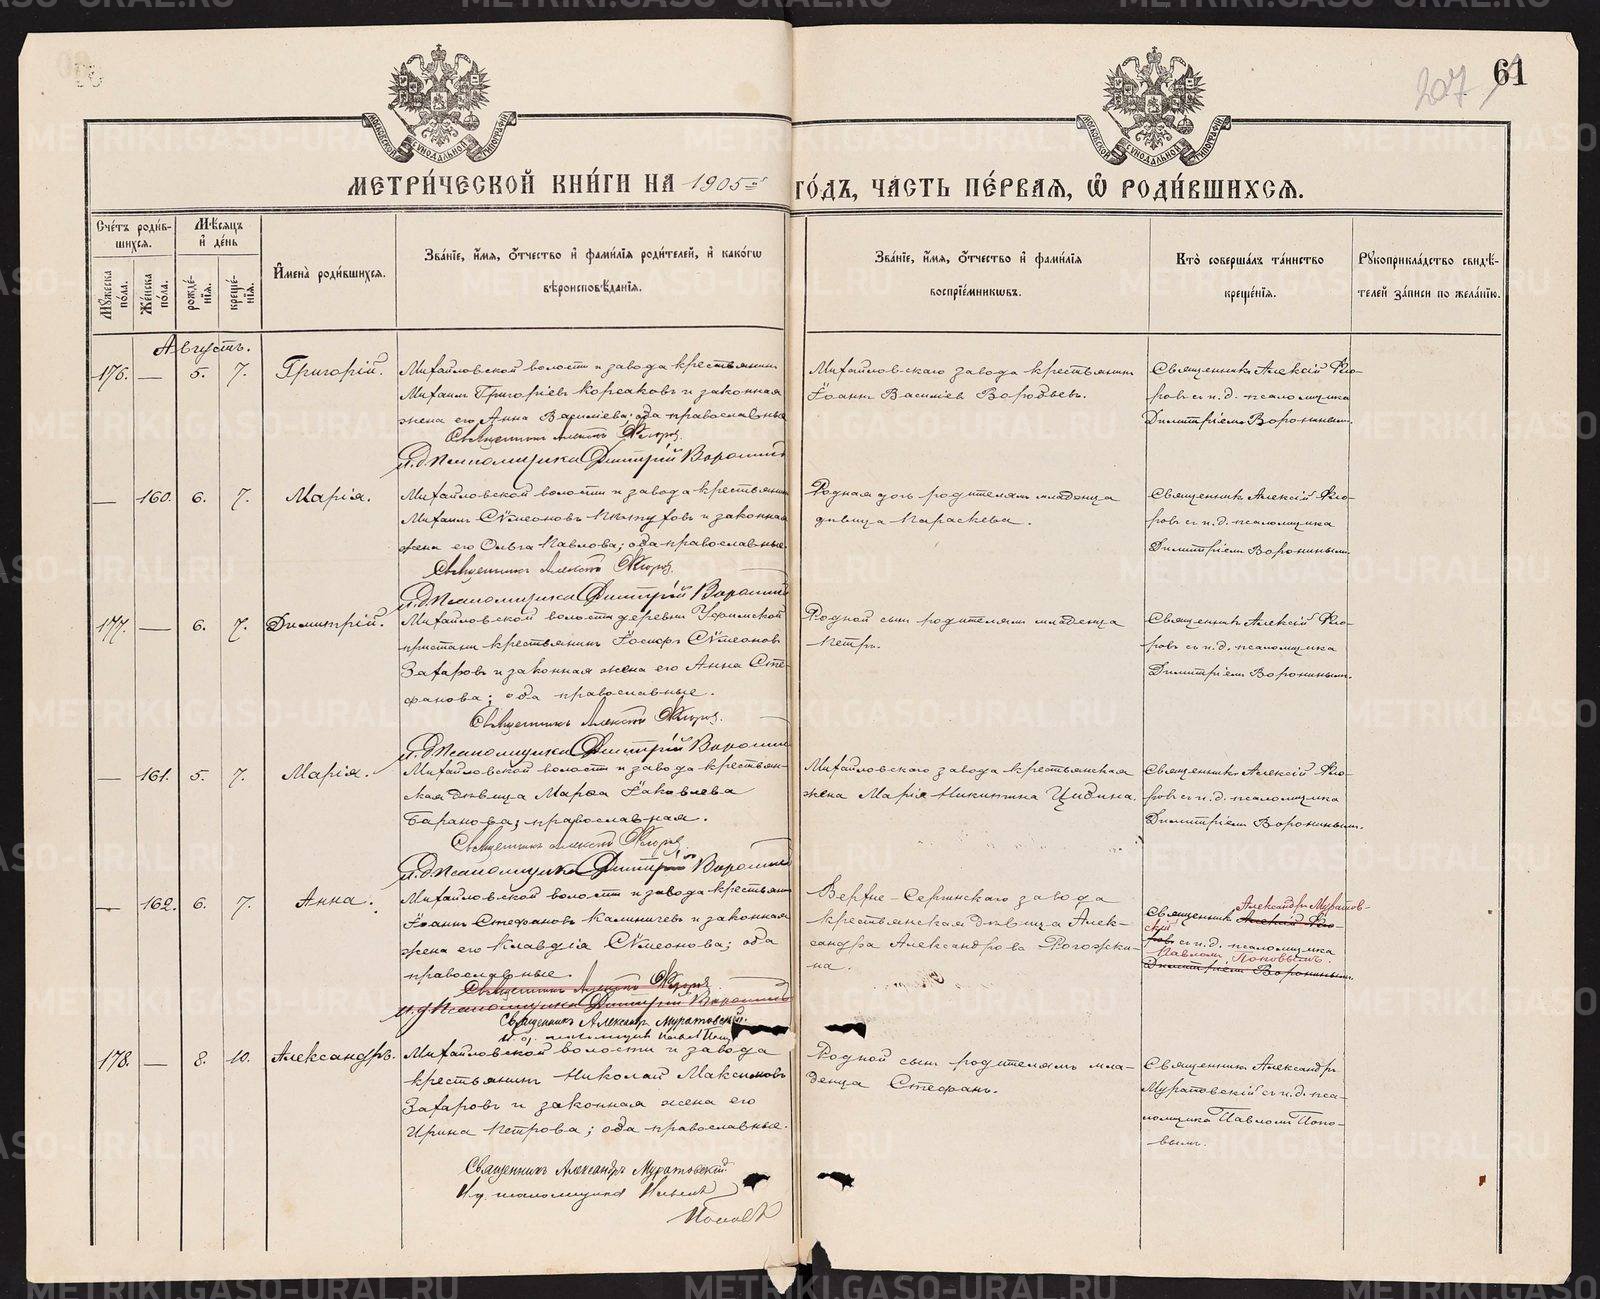 207 61
МОСКОВСКОЙ СѴНОДАЛЬНОЙ ТИПОГРАФІИ
МОСКОВСКОЙ СѴНОДАЛЬНОЙ ТИПОГРАФІИ
МЕТРИ́ЧЕСКОЙ КНИ́ГИ НА 1905й ГО́ДЪ, ЧА́СТЬ ПЕ́РВАѦ, Ѽ РОДИ́ВШИХСѦ.
Сче́тъ роди́вшихся.
Мѣ́сяцъ и҆ де́нь
Мꙋ́жеска по́ла.
Же́нска по́ла.
рожде́нїя.
креще́нїя.
И҆мена̀ роди́вшихся.
Зва́нїе, и҆́мя, ѻ҆́тчество и҆ фами́лїя роди́телей, и҆ како́гѡ вѣроисповѣ́данїя.
Зва́нїе, и҆́мя, ѻ҆́тчество и҆ фами́лїя воспрїе́мникѡвъ.
Кто̀ соверша́лъ та́инство креще́нїя.
Рꙋкоприкла́дство свидѣ́телей за́писи по жела́нїю.
Августъ.
176. — 5. 7. Григорій.
Михайловской волости и завода крестьянинъ
Михаилъ Григоріевъ Корсаковъ и законная
жена его Анна Василіева; оба православные
Священникъ Алексій Флоровъ
и.д. псаломщика Димитрій Воронинъ
Михайловскаго завода крестьянинъ
Іоаннъ Василіевъ Воробьевъ.
Священникъ Алексій Фло-
ровъ съ и.д. псаломщика
Димитріемъ Воронинымъ.
— 160. 6. 7. Марія.
Михайловской волости и завода крестьянинъ
Михаилъ Сѵмеоновъ и законная
жена его Ольга Павлова; оба православные.
Священникъ Алексій Флоровъ
и.д. псаломщика Димитрій Воронинъ
Родная дочь родителямъ младенца
дѣвица Параскева.
Священникъ Алексій Фло-
ровъ съ и.д. псаломщика
Димитріемъ Воронинымъ.
177. — 6. 7. Димитрій.
Михайловской волости деревни Уфимской
пристани крестьянинъ Іосифъ Сѵмеоновъ
Захаровъ и законная жена его Анна Сте-
фанова; оба православные.
Священникъ Алексій Флоровъ
и.д. псаломщика Димитрій Воронинъ
Родной сынъ родителямъ младенца
Петръ.
Священникъ Алексій Фло-
ровъ съ и.д. псаломщика
Димитріемъ Воронинымъ.
— 161. 5. 7. Марія.
Михайловской волости и завода крестьян-
ская дѣвица Марѳа Іаковлева
Баранова; православная.
Священникъ Алексій Флоровъ
и.д. псаломщика Димитрій Воронинъ
Михайловскаго завода крестьянская
жена Марія Никитина Цивина.
Священникъ Алексій Фло-
ровъ съ и.д. псаломщика
Димитріемъ Воронинымъ.
— 162. 6. 7. Анна.
Михайловской волости и завода крестьянинъ
Іоаннъ Стефановъ Калиничевъ и законная
жена его Клавдія Сѵмеонова; оба
православные.
Священникъ Алексій Флоровъ
и.д. псаломщика Димитрій Воронинъ
Священникъ Александръ Муратовскій.
и.д. псаломщика Павелъ Поповъ
Верхне-Сергинскаго завода
крестьянская дѣвица Алек-
сандра Александрова Рогожки-
на.
Александръ Муратов-
Священникъ Алексій Фло-
скій
ровъ съ и.д. псаломщика
Павломъ Поповымъ.
Димитріемъ Воронинымъ.
178. — 8. 10. Александръ.
Михайловской волости и завода
крестьянинъ Николай Максимовъ
Захаровъ и законная жена его
Ирина Петрова; оба православные.
Священникъ Александръ Муратовскій
И.д. псаломщика Павелъ
Поповъ
Родной сынъ родителямъ мла-
денца Стефанъ.
Священникъ Александръ
Муратовскій съ и.д. пса-
ломщика Павломъ Попо-
вымъ.
METRIKI.GASO-URAL.RU